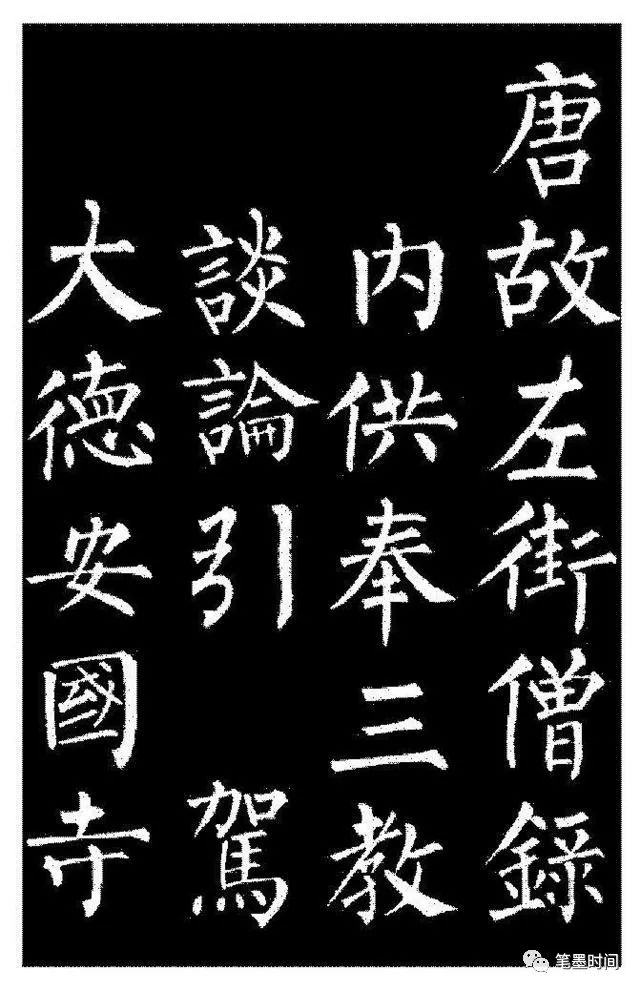 唐故左街僧錄
內供奉三教
談論引 駕
大德安國寺
笔墨时间